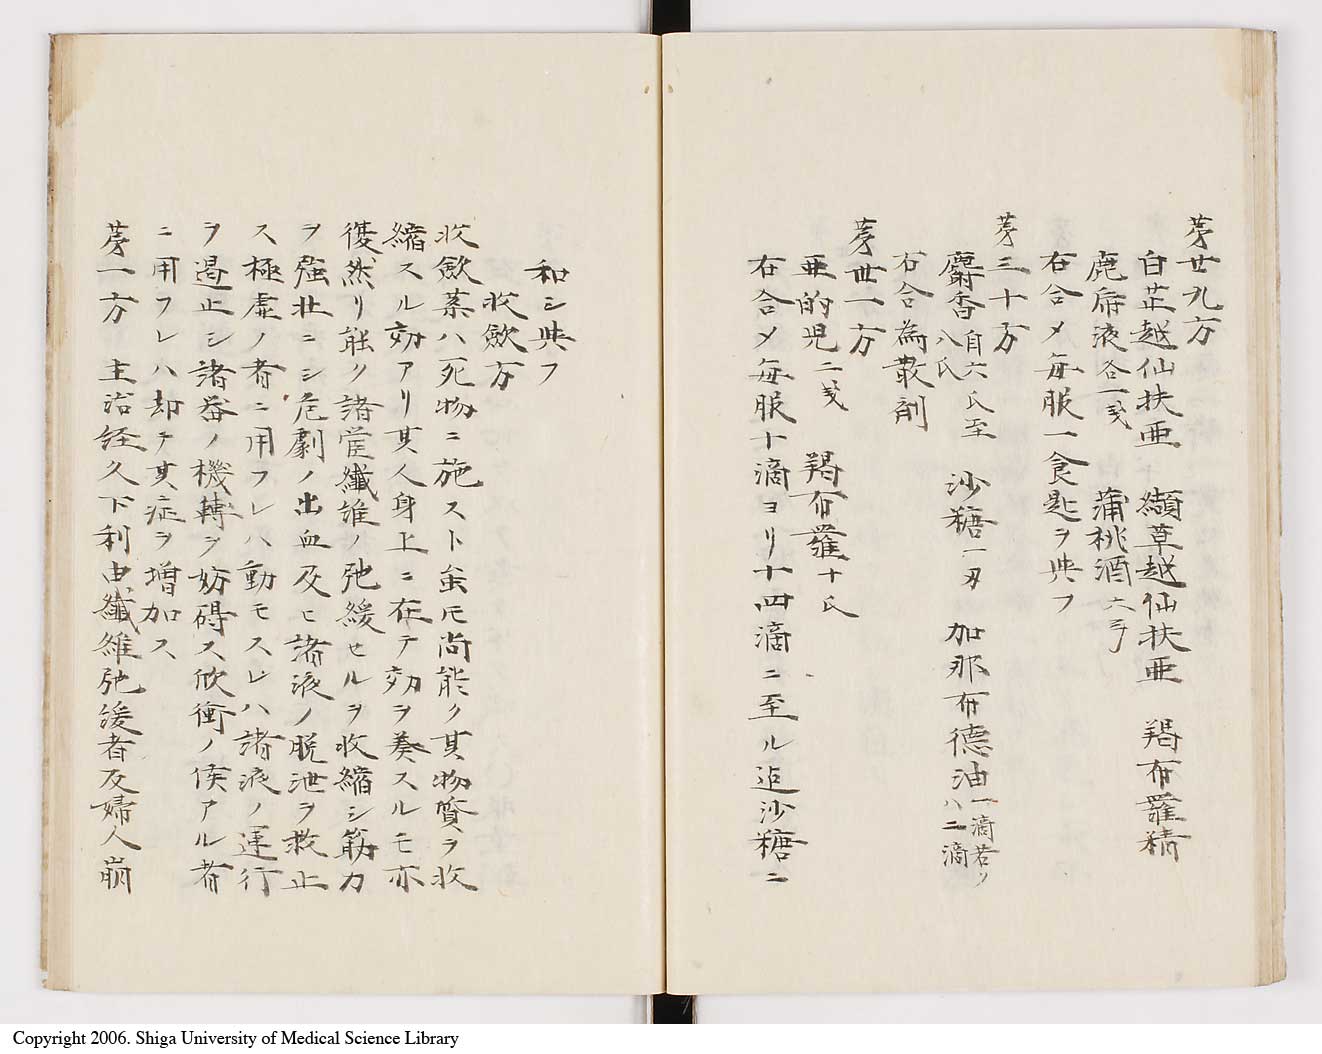 第廿九方
白芷越仙扶亜 纈草越仙扶亜 羯布羅精
鹿角液各一戔 蒲桃酒六ヲ
右合メ毎服一食匙ヲ与フ
第三十方
麝香自六氏至八氏 沙糖一刄 加那布徳油一滴若クハ二滴
右合為散剤
第卅一方
亜的児二戔 羯布羅十氏
右合メ毎服十滴ヨリ十四滴ニ至ル迄沙糖ニ
和シ与フ
収斂方
収斂薬ハ死物ニ施スト虽モ尚能ク其物質ヲ収
縮スル効アリ其人身上ニ在テ効ヲ奏スルモ亦
復然リ能ク諸管纖維ノ弛緩セルヲ收縮シ筋力
ヲ強壮ニシ危劇ノ出血及ヒ諸液ノ脱泄ヲ救止
ス極虚ノ者ニ用フレハ動モスレハ諸液ノ運行
ヲ遏止シ諸器ノ機轉ヲ妨碍ス焮衝ノ候アル者
ニ用フレハ却テ其症ヲ増加ス
第一方 主治経久下利由纖維弛緩者及婦人崩